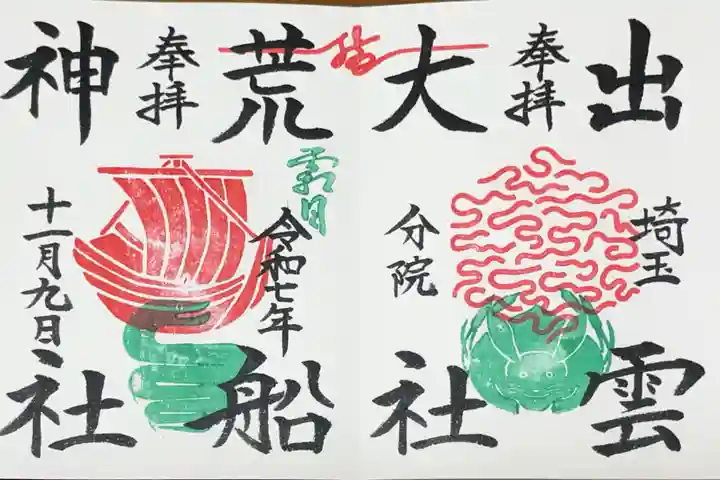 出雲
奉拝
埼玉
大社
分院
結
荒船
霜月
令和七年
奉拝
神社
十一月九日